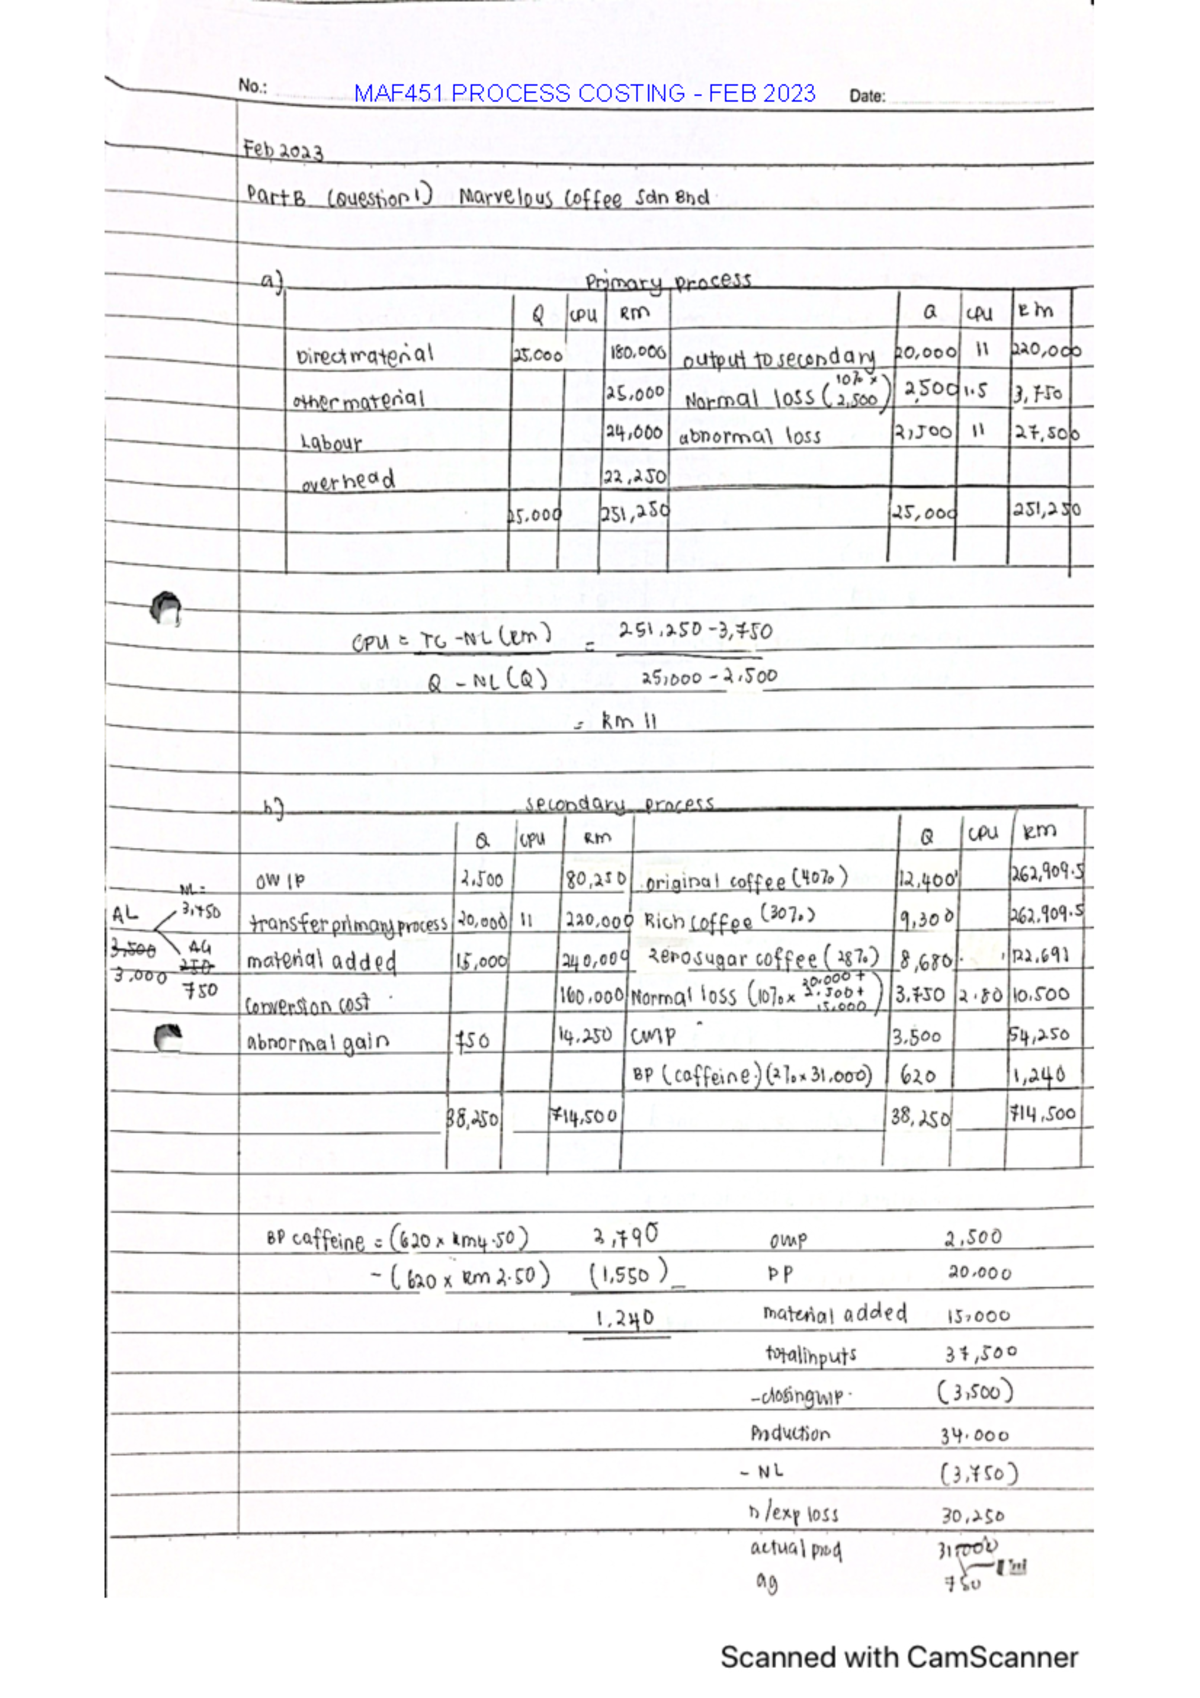 No.: MAF451 PROCESS COSTING - FEB 2023 Date:
Feb 2023
Part B (Question 1) Marvelous Coffee Sdn Bhd
a) Primary process
Q CPU RM Q CPU RM
Direct material 25.000 180,000 output to secondary 20,000 11 220,000
other material 25,000 Normal loss (10% x 2,500) 2,500 1.5 3,750
Labour 24,000 abnormal loss 2,500 11 27,500
overhead 22,250
25.000 251,250 25,000 251,250
CPU = TC - NL (RM) = 251,250 - 3,750
Q - NL (Q) 25,000 - 2,500
= RM 11
b) Secondary process
Q CPU RM Q CPU RM
OWIP 2,500 80,250 original coffee (40%) 12,400 262,909.5
NL: 3,750
AL transfer primary process 20,000 11 220,000 Rich coffee (30%) 9,300 262,909.5
3,500 AG material added 15,000 240,000 zero sugar coffee (28%) 8,680 122,691
3,000 250
750 conversion cost 160,000 Normal loss (10% x 20.000 + 2.500 + 15,000) 3,750 2.80 10,500
abnormal gain 750 14,250 CWIP 3,500 54,250
BP (caffeine) (2% x 31,000) 620 1,240
38,250 714,500 38,250 714,500
BP caffeine = (620 x RM4.50) 2,790 OWIP 2,500
- (620 x RM 2.50) (1,550) PP 20.000
1,240 material added 15,000
total inputs 37,500
- closing WIP (3,500)
Production 34.000
- NL (3,750)
n/exp loss 30,250
actual prod 31,000
ag 750
Scanned with CamScanner